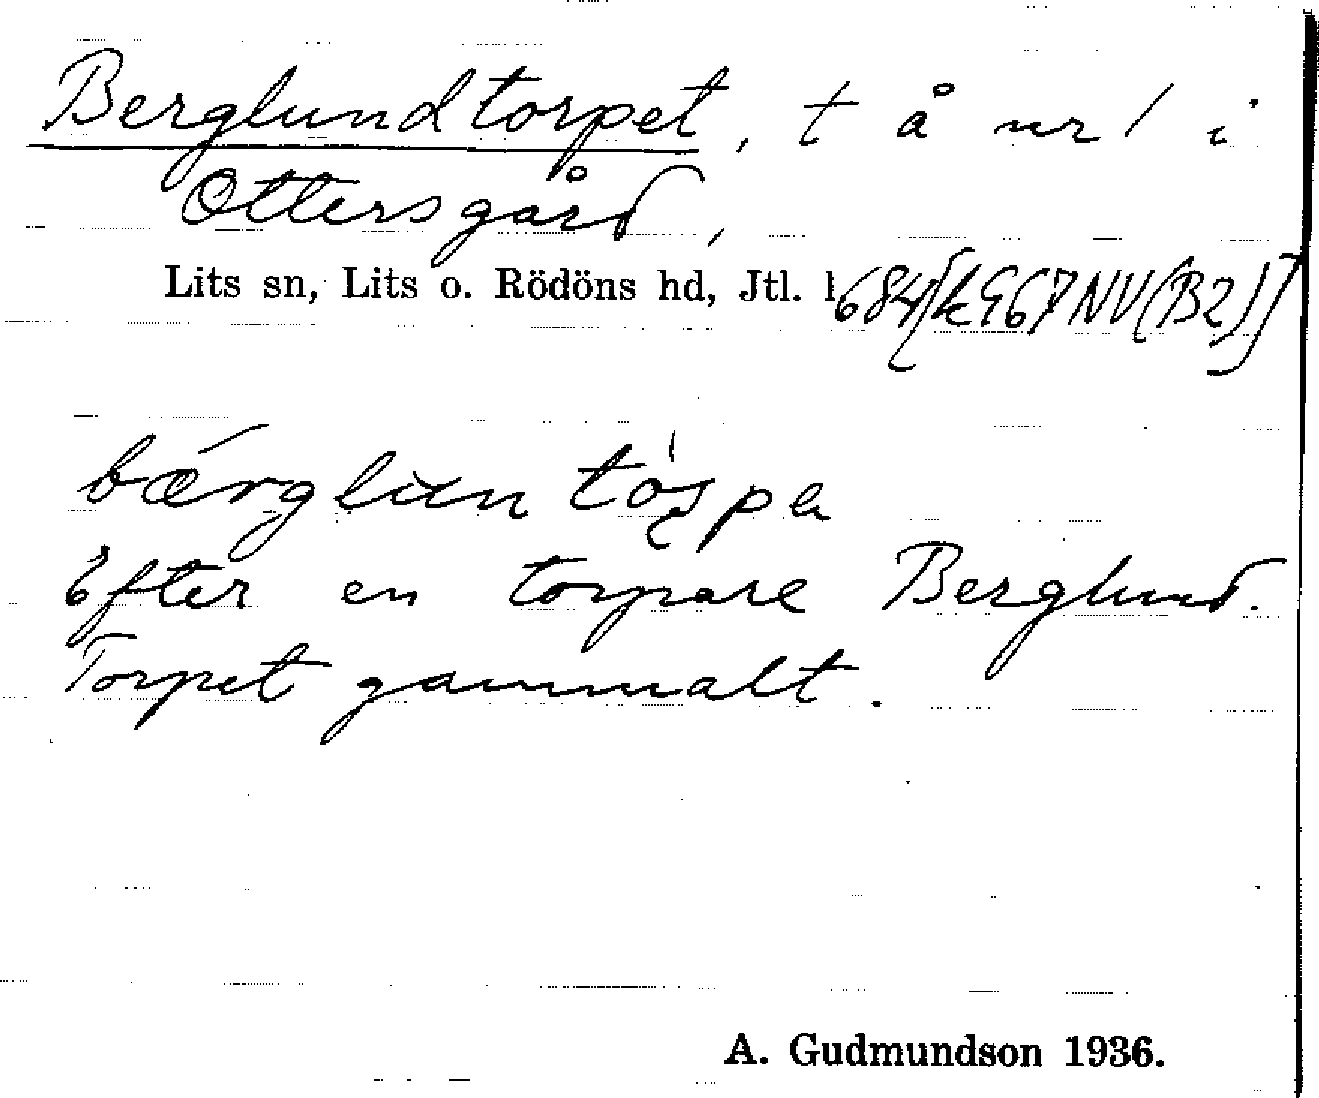 Berglundtorpet, t å nr 1 i
Ottersgård,
Lits sn, Lits o. Rödöns hd, Jtl. l
bǽrglun
Efter en torpare Berglund.
Torpet gammalt.
A. Gudmundson 1936.